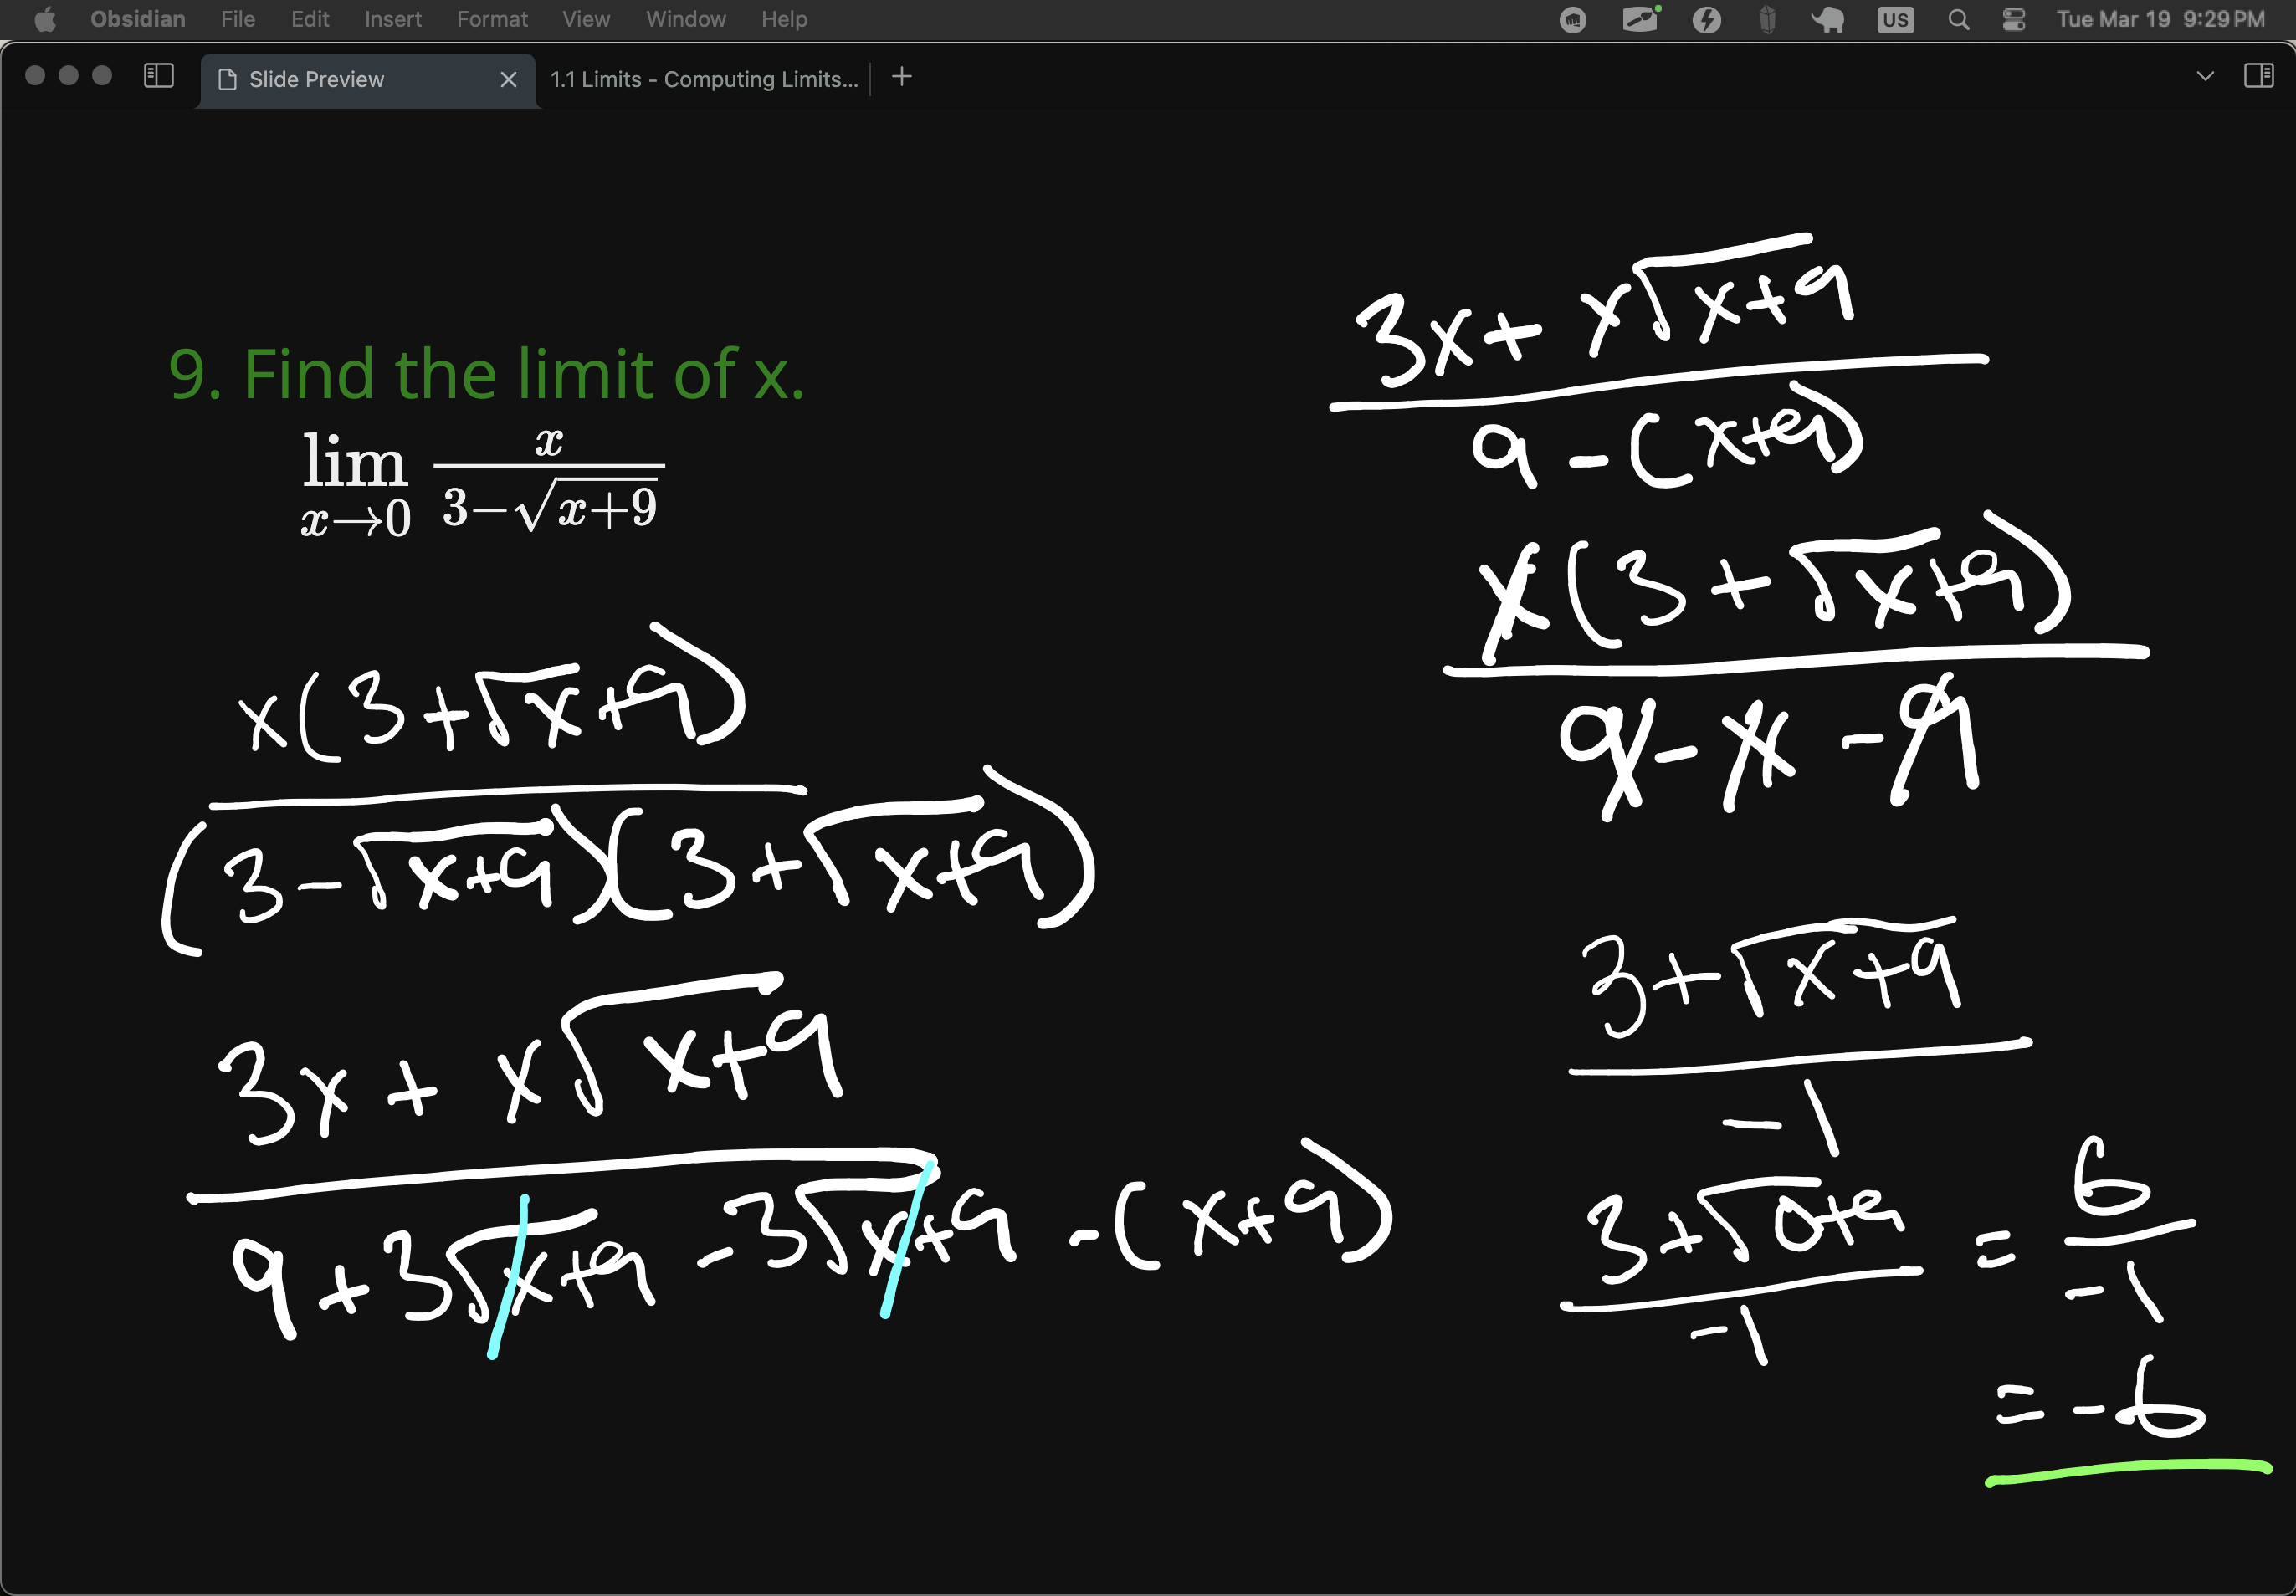 Obsidian File Edit Insert Format View Window Help US Tue Mar 19 9:29 PM
Slide Preview 1.1 Limits - Computing Limits...
9. Find the limit of x.
lim x→0 x / (3−√(x+9))
x(3+√x+9)
(3-√x+9)(3+√x+9)
3x+x√x+9
9+3√x+9-3√x+9-(x+9)
3x+x√x+9
9-(x+9)
x(3+√x+9)
9-x-9
3+√x+9
-1
3+√0+9 = 6
-1 -1
= -6